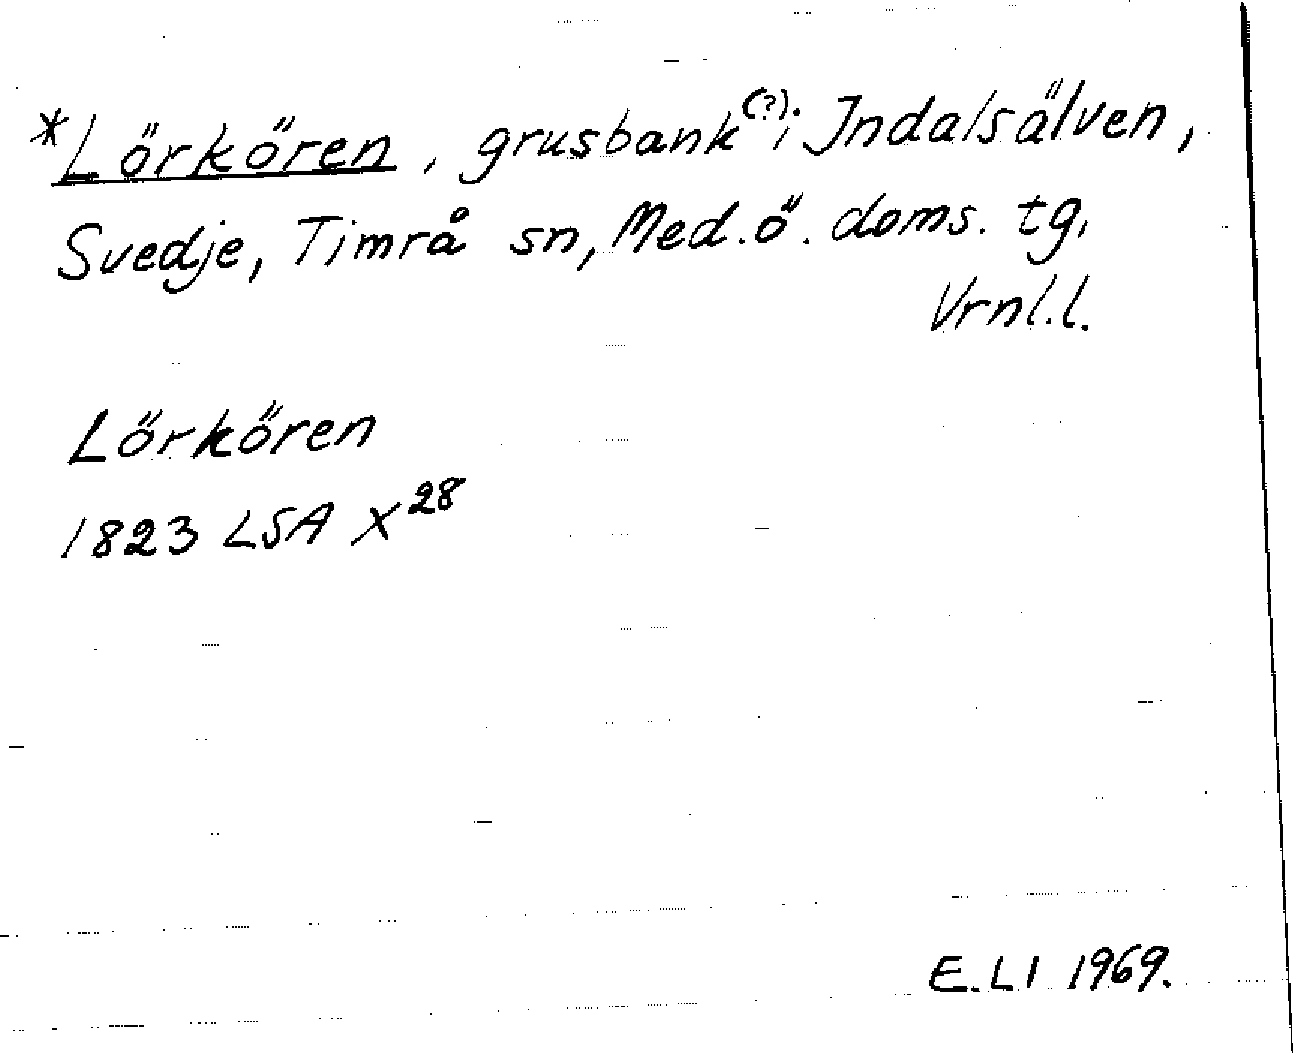 *Lörkören, grusbank(?) i Indalsälven,
Svedje, Timrå sn, Med. ö. doms. tg,
Vrnl.l.
Lörkören
1823 LSA X²⁸
E.LI 1969.